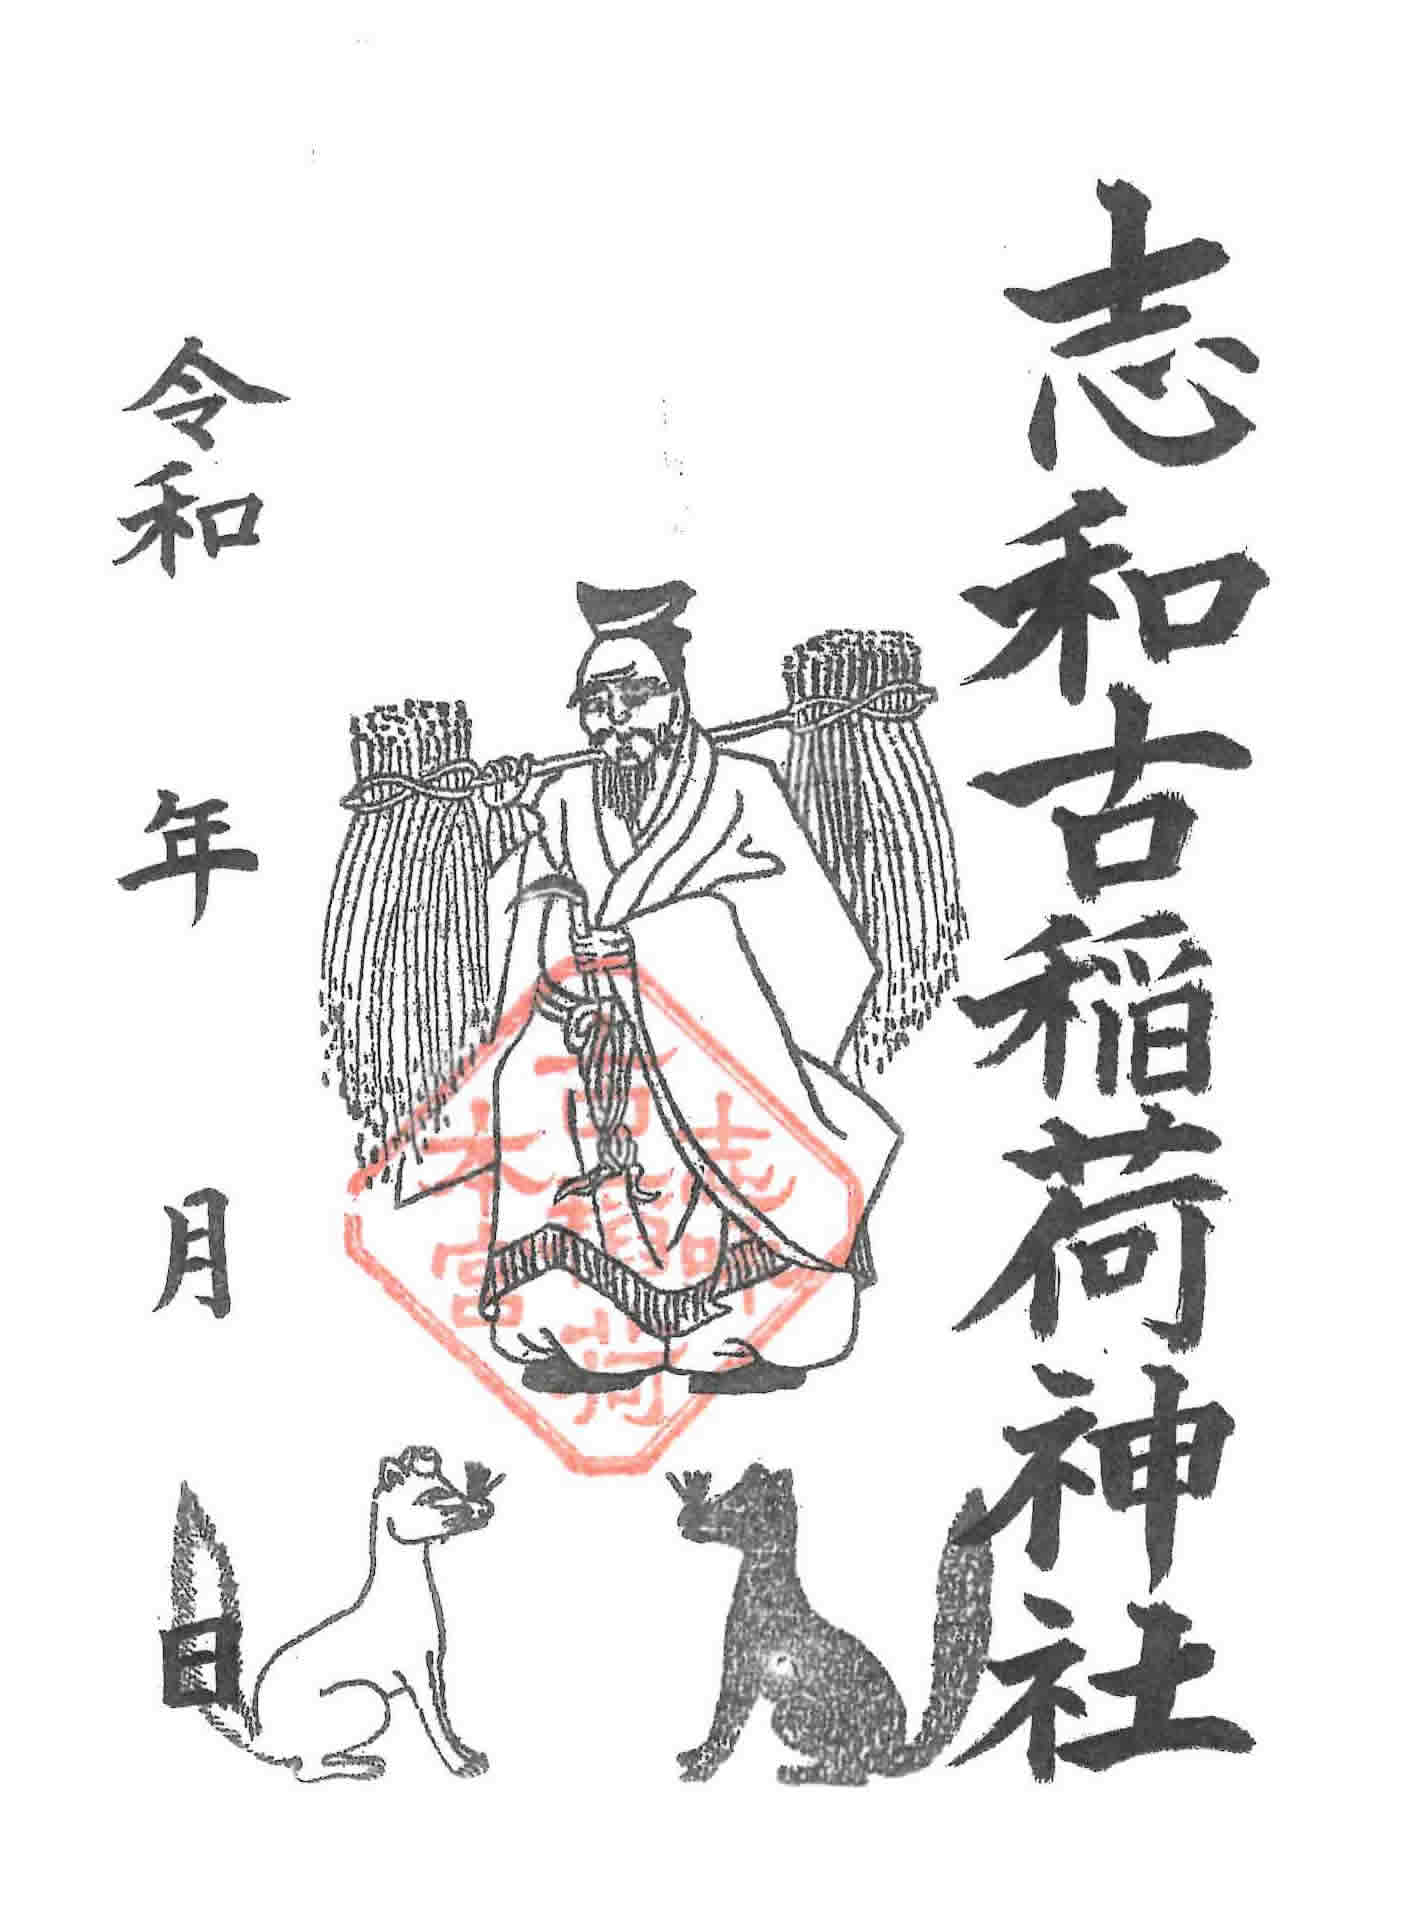 志和古稲荷神社
志和
古稲荷
本宮
令和 年 月 日